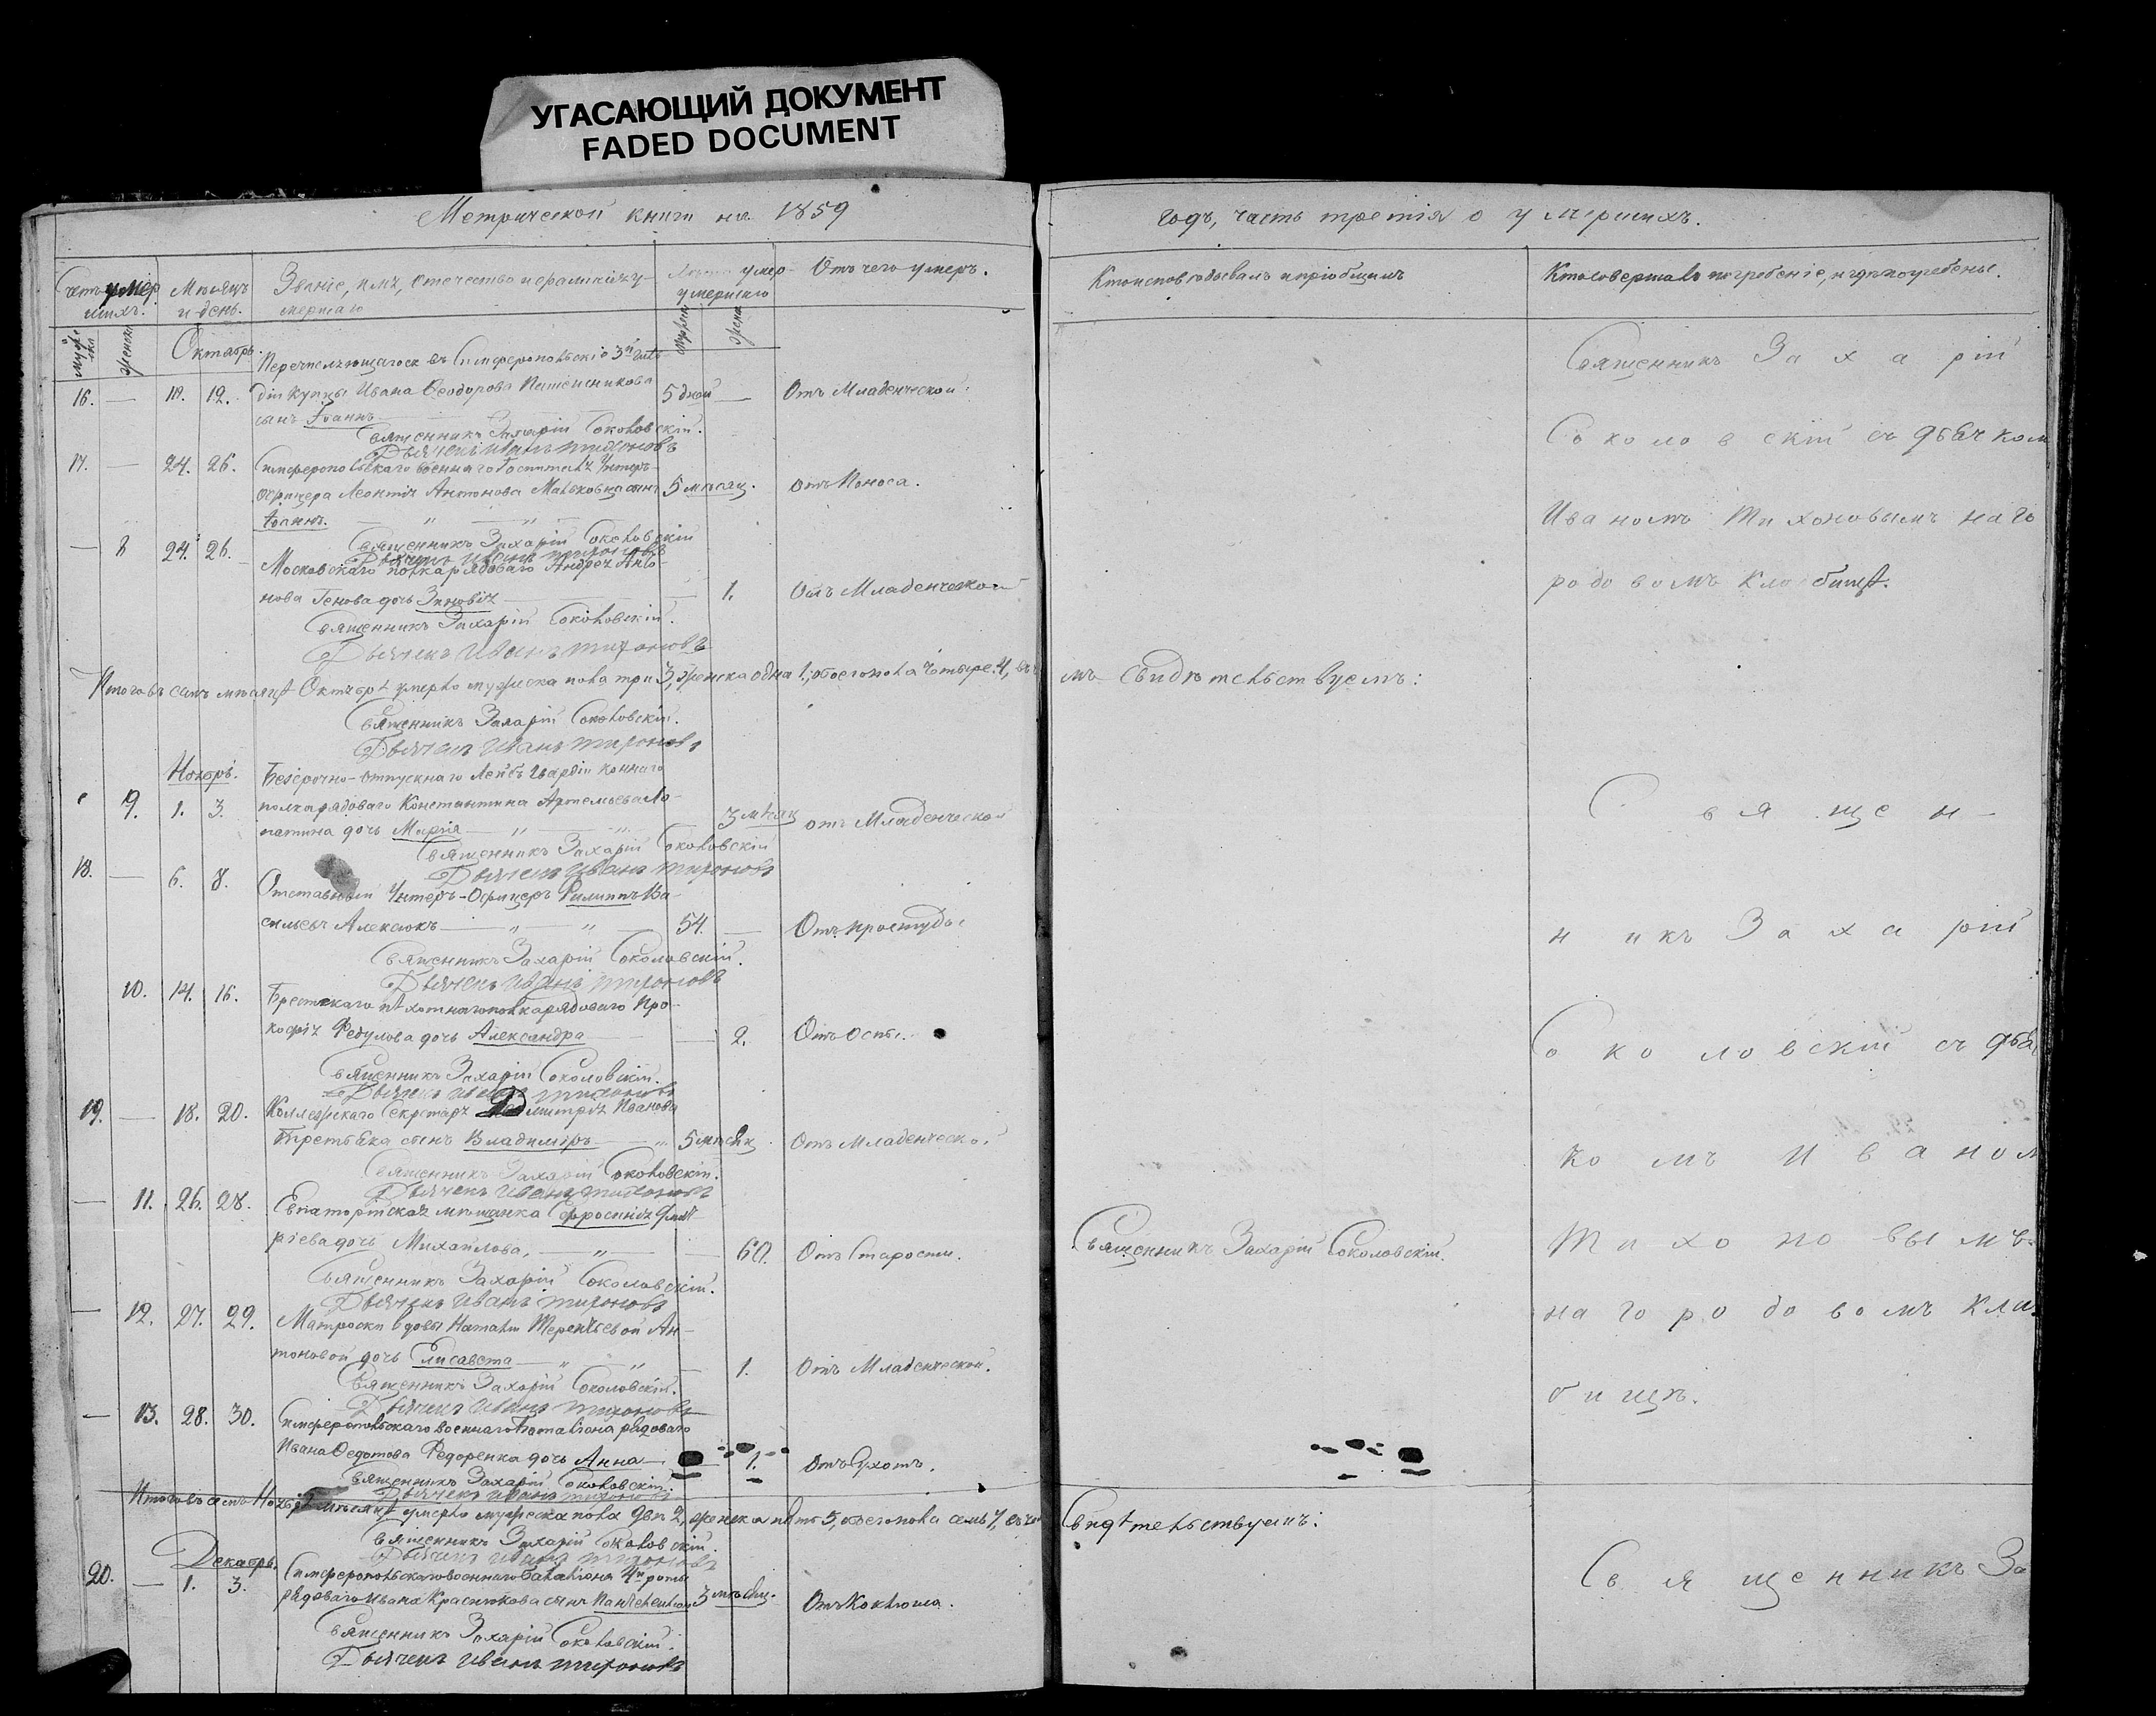 УГАСАЮЩИЙ ДОКУМЕНТ
FADED DOCUMENT
Метрической книги на 1859
годъ, часть третія о умершихъ.
Счетъ умер-
шихъ.
Мѣсяцъ
и день.
Званіе, имя, отечество и фамилія у-
мершаго
Лѣта умер-
умершаго
Отъ чего умеръ.
Кто исповѣдывалъ и пріобщилъ
Кто совершалъ погребеніе, и гдѣ погребены.
Октябрь.
Перечисляющагося въ Симферопольскіе 3й гиль-
16. — 10. 12. діи купцы Ивана Ѳеодорова сынъ Іоаннъ 5 дней — Отъ Младенческой.
Священникъ Захарій Соколовскій.
Дьячекъ Иванъ Тихоновъ
17. — 24. 26. Симферопольскаго военнаго Госпиталя Унтеръ-
офицера Леонтія Антонова сынъ 5 мѣсяц. отъ Поноса.
Іоаннъ.
Священникъ Захарій Соколовскій
Дьячекъ Иванъ Тихоновъ
— 8 24. 26. Московскаго полка рядоваго Андрея Анто-
нова дочь Зиновія — 1. Отъ Младенческой
Священникъ Захарій Соколовскій.
Дьячекъ Иванъ Тихоновъ
Священникъ Захарій
Соколовскій съ дьячком
Иваномъ Тихоновымъ на го
родовомъ кладбищѣ.
Итого въ семъ мѣсяцѣ Октябрѣ умерло мужеска пола три 3, женска одна 1; обоего пола четыре 4, въ че
мъ свидѣтельствуемъ:
Священникъ Захарій Соколовскій.
Дьячекъ Иванъ Тихоновъ
Ноябрь.
Безсрочно-отпускнаго Лейбъ Гвардіи Коннаго
9. 1. 3. полка рядоваго Константина Артемьева Ло-
патина дочь Марія — 3 мѣсяц отъ Младенческой
Священникъ Захарій Соколовскій
Дьячекъ Иванъ Тихоновъ
18. — 6. 8. Отставный Унтеръ-Офицеръ Филиппъ Ва-
сильевъ Алексюкъ — 54. — Отъ простуды
Священникъ Захарій Соколовскій.
Дьячекъ Иванъ Тихоновъ
10. 14. 16. Брестскаго пѣхотнаго полка рядоваго Про-
кофія Федулова дочь Александра — 2. Отъ Оспы.
Священникъ Захарій Соколовскій.
Дьячекъ Иванъ Тихоновъ
19. — 18. 20. Коллежскаго Секретаря Димитрія Иванова
Третьяка сынъ Владиміръ — 5 мѣсяц. Отъ Младенческой
Священникъ Захарій Соколовскій.
Дьячекъ Иванъ Тихоновъ
— 11. 26. 28. Евпаторійская мѣщанка Ефросинія Дмит-
ріева дочь Михайлова, — 60. Отъ Старости.
Священникъ Захарій Соколовскій.
Священникъ Захарій Соколовскій.
Дьячекъ Иванъ Тихоновъ
— 12. 27. 29. Матроски вдовы Наталіи Терентьевой Ан-
тоновой дочь Елисавета — 1. Отъ Младенческой.
Священникъ Захарій Соколовскій.
Дьячекъ Иванъ Тихоновъ
— 13. 28. 30. Симферопольскаго военнаго Баталіона рядоваго
Ивана Ѳедотова Федоренка дочь Анна — 1. Отъ Сухотъ.
Священникъ Захарій Соколовскій.
Дьячекъ Иванъ Тихоновъ
Священ-
никъ Захарій
Соколовскій съ дьяч
комъ Иваном
Тихоновымъ
на городовомъ клад
бищѣ.
Итого въ семъ Ноябрѣ мѣсяцѣ умерло мужеска пола два 2, женска пять 5, обоего пола семь 7, въ чем
Свидѣтельствуемъ:
Священникъ Захарій Соколовскій.
Дьячекъ Иванъ Тихоновъ
Декабрь.
20. — 1. 3. Симферопольскаго военнаго Баталіона 4й роты
рядоваго Ивана Краснюкова сынъ Пантелеимон 3 мѣсяц. Отъ Коклюша.
Священникъ Захарій Соколовскій.
Дьячекъ Иванъ Тихоновъ
Священникъ За